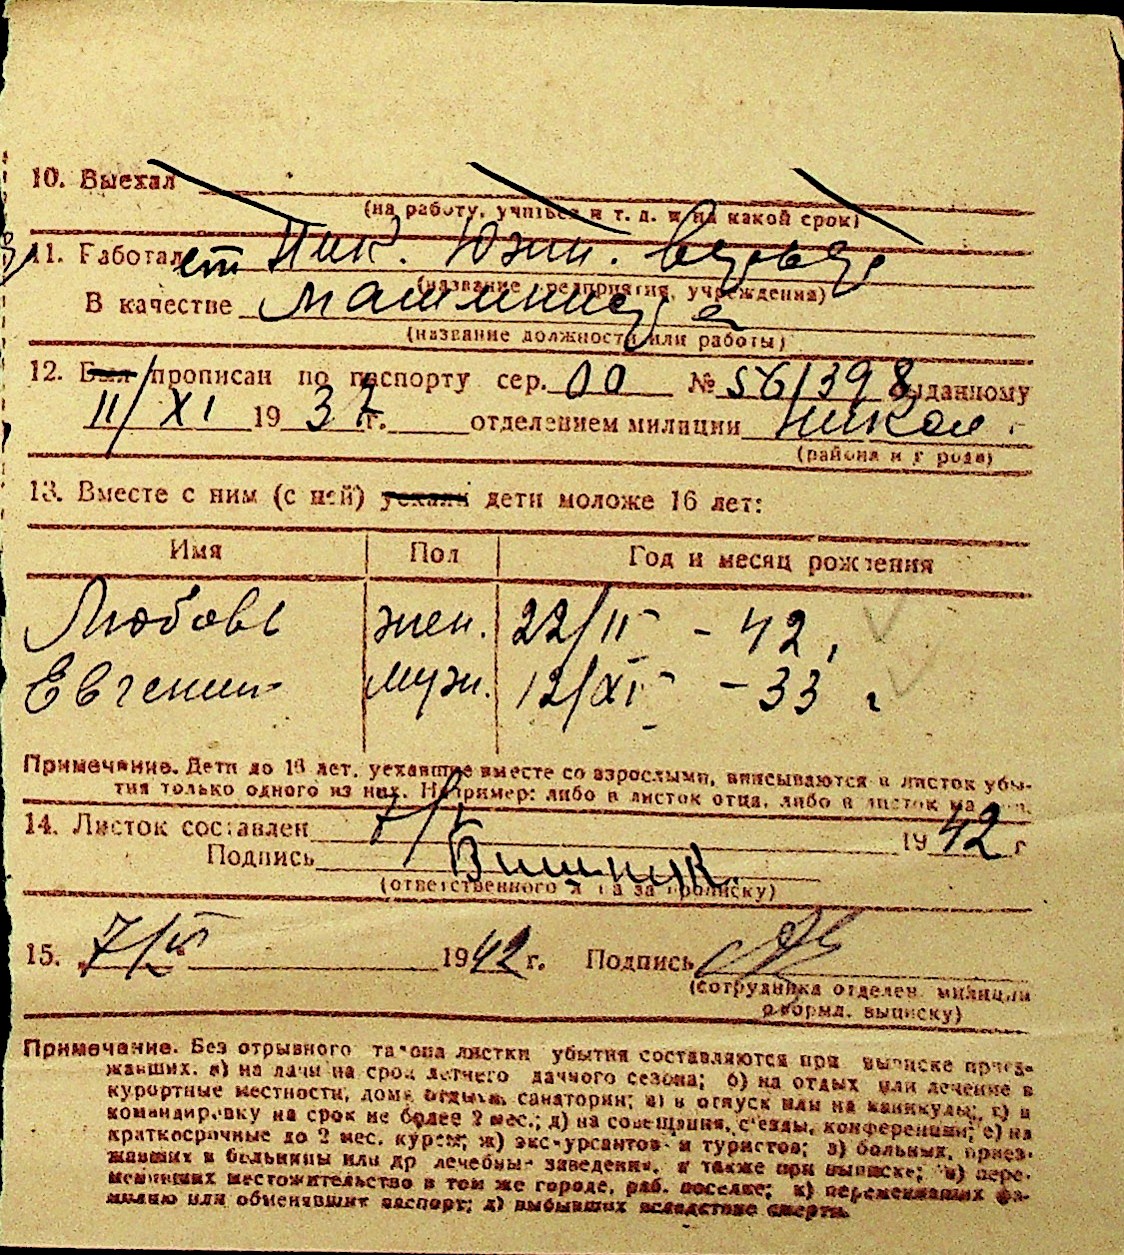 10. Выехал
(на работу, учиться и т. д. и на какой срок)
11. Работал ет Ник. Южн.
(название предприятия, учреждения)
В качестве машинистка
(название должности или работы)
12. Был прописан по паспорту сер. 00 № 561398 выданному
11/XI 1937 г. отделением милиции Никол.
(района и города)
13. Вместе с ним (с ней) уехали дети моложе 16 лет:
Имя Пол Год и месяц рождения
Любовь жен. 22/II - 42.
Евгений муж. 12/XI - 33 г
Примечание. Дети до 16 лет, уехавшие вместе со взрослыми, вписываются в листок убы-
тия только одного из них. Например: либо в листок отца, либо в листок матери.
14. Листок составлен 7/V 1942 г
Подпись Вишняк.
(ответственного лица за прописку)
15. 7/V 1942 г. Подпись
(сотрудника отделен. милиции
оформл. выписку)
Примечание. Без отрывного талона листки убытия составляются при выписке приез-
жавших. а) на дачи на срок летнего дачного сезона; б) на отдых или лечение в
курортные местности, дома отдыха, санатории; в) в отпуск или на каникулы; г) в
командировку на срок не более 2 мес.; д) на совещания, с'езды, конференции; е) на
краткосрочные до 2 мес. курсы; ж) экскурсантов и туристов; з) больных, приез-
жавших в больницы или др лечебные заведения, а также при выписке; и) пере-
менивших местожительство в том же городе, раб. поселке; к) переменивших фа-
милию или обменявших паспорт; л) выбывших вследствие смерти.